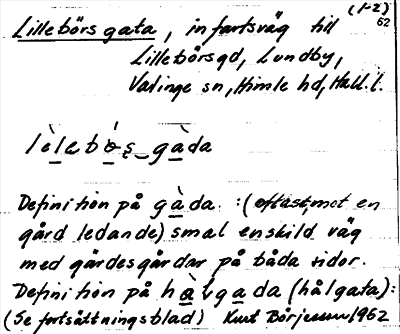 (1-2)
62
Lillebörs gata, infartsväg till
Lillebörsgd, Lundby,
Valinge sn, Himle hd, Hall. l.
lèlebò̱ș_gàda
Definition på gàda: (oftast, mot en
gård ledande) smal enskild väg
med gärdesgårdar på båda sidor.
Definition på hàlvgada (hålgata):
(Se fortsättningsblad) Kurt Börjesson 1962